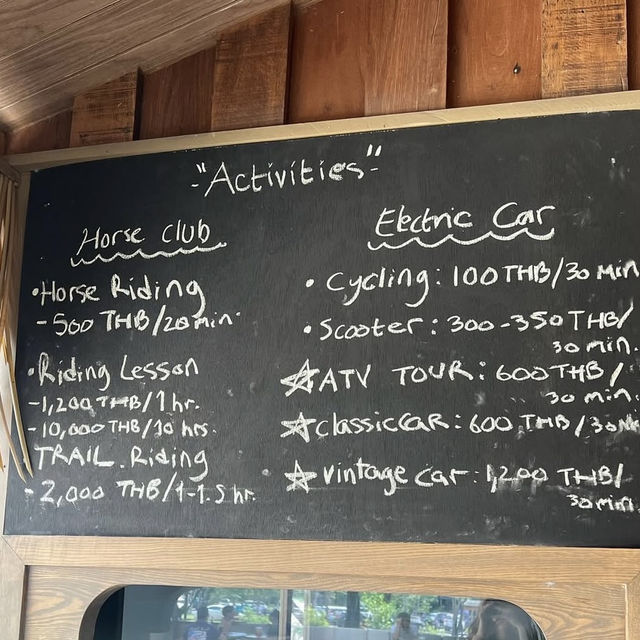 -"Activities"-
Horse club
•Horse Riding
-500 THB/20min.
•Riding Lesson
-1,200 THB/1 hr.
-10,000 THB/10 hrs.
TRAIL.Riding
-2,000 THB/1-1.5 hr.
Electric Car
• Cycling: 100THB/30 Min
•Scooter: 300-350THB/
30 min.
☆ATV TOUR: 600THB/
30 min.
☆classicCAR: 600 THB/30
☆vintage car: 1,200 THB/
30min.